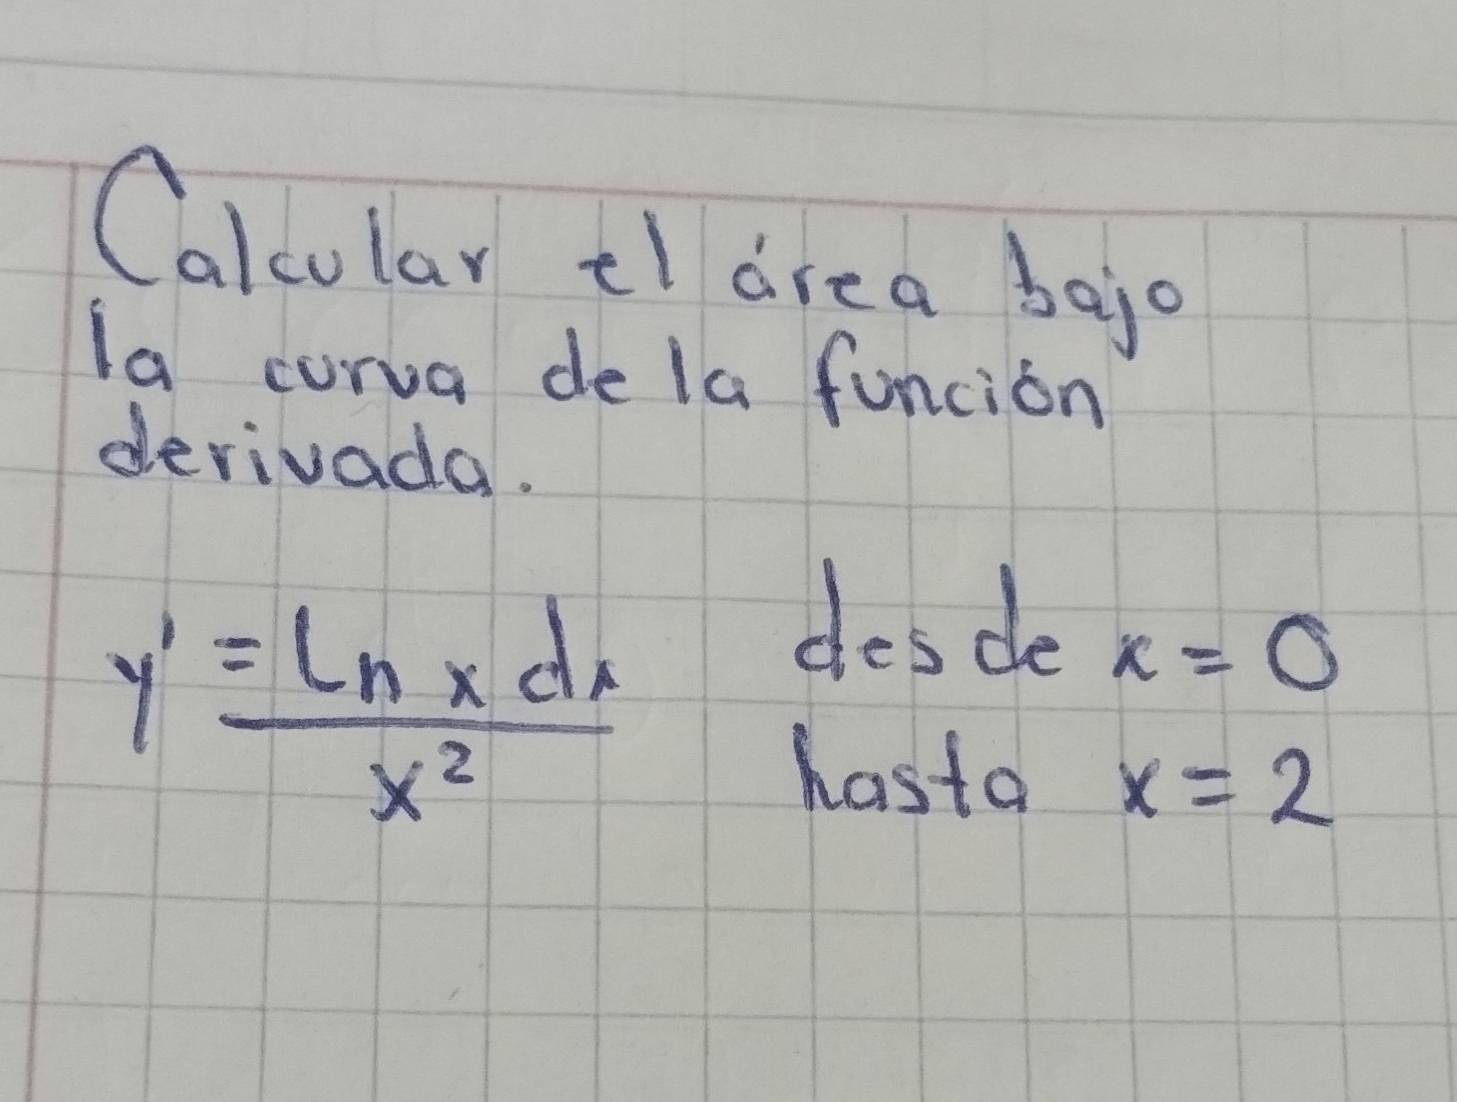 Calcular el área bajo
la curva de la función
derivada.
y' = ln x dx desde x = 0
x² hasta x = 2